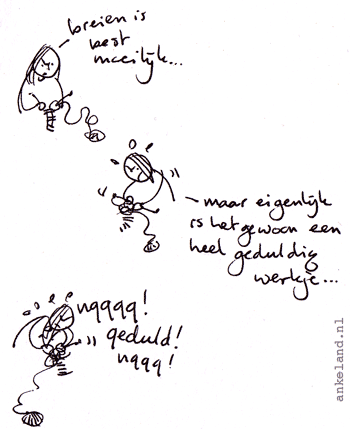 breien is
best
moeilijk...
maar eigenlijk
is het gewoon een
heel geduldig
werkje...
ngggg!
geduld!
nggg!
ankeland.nl